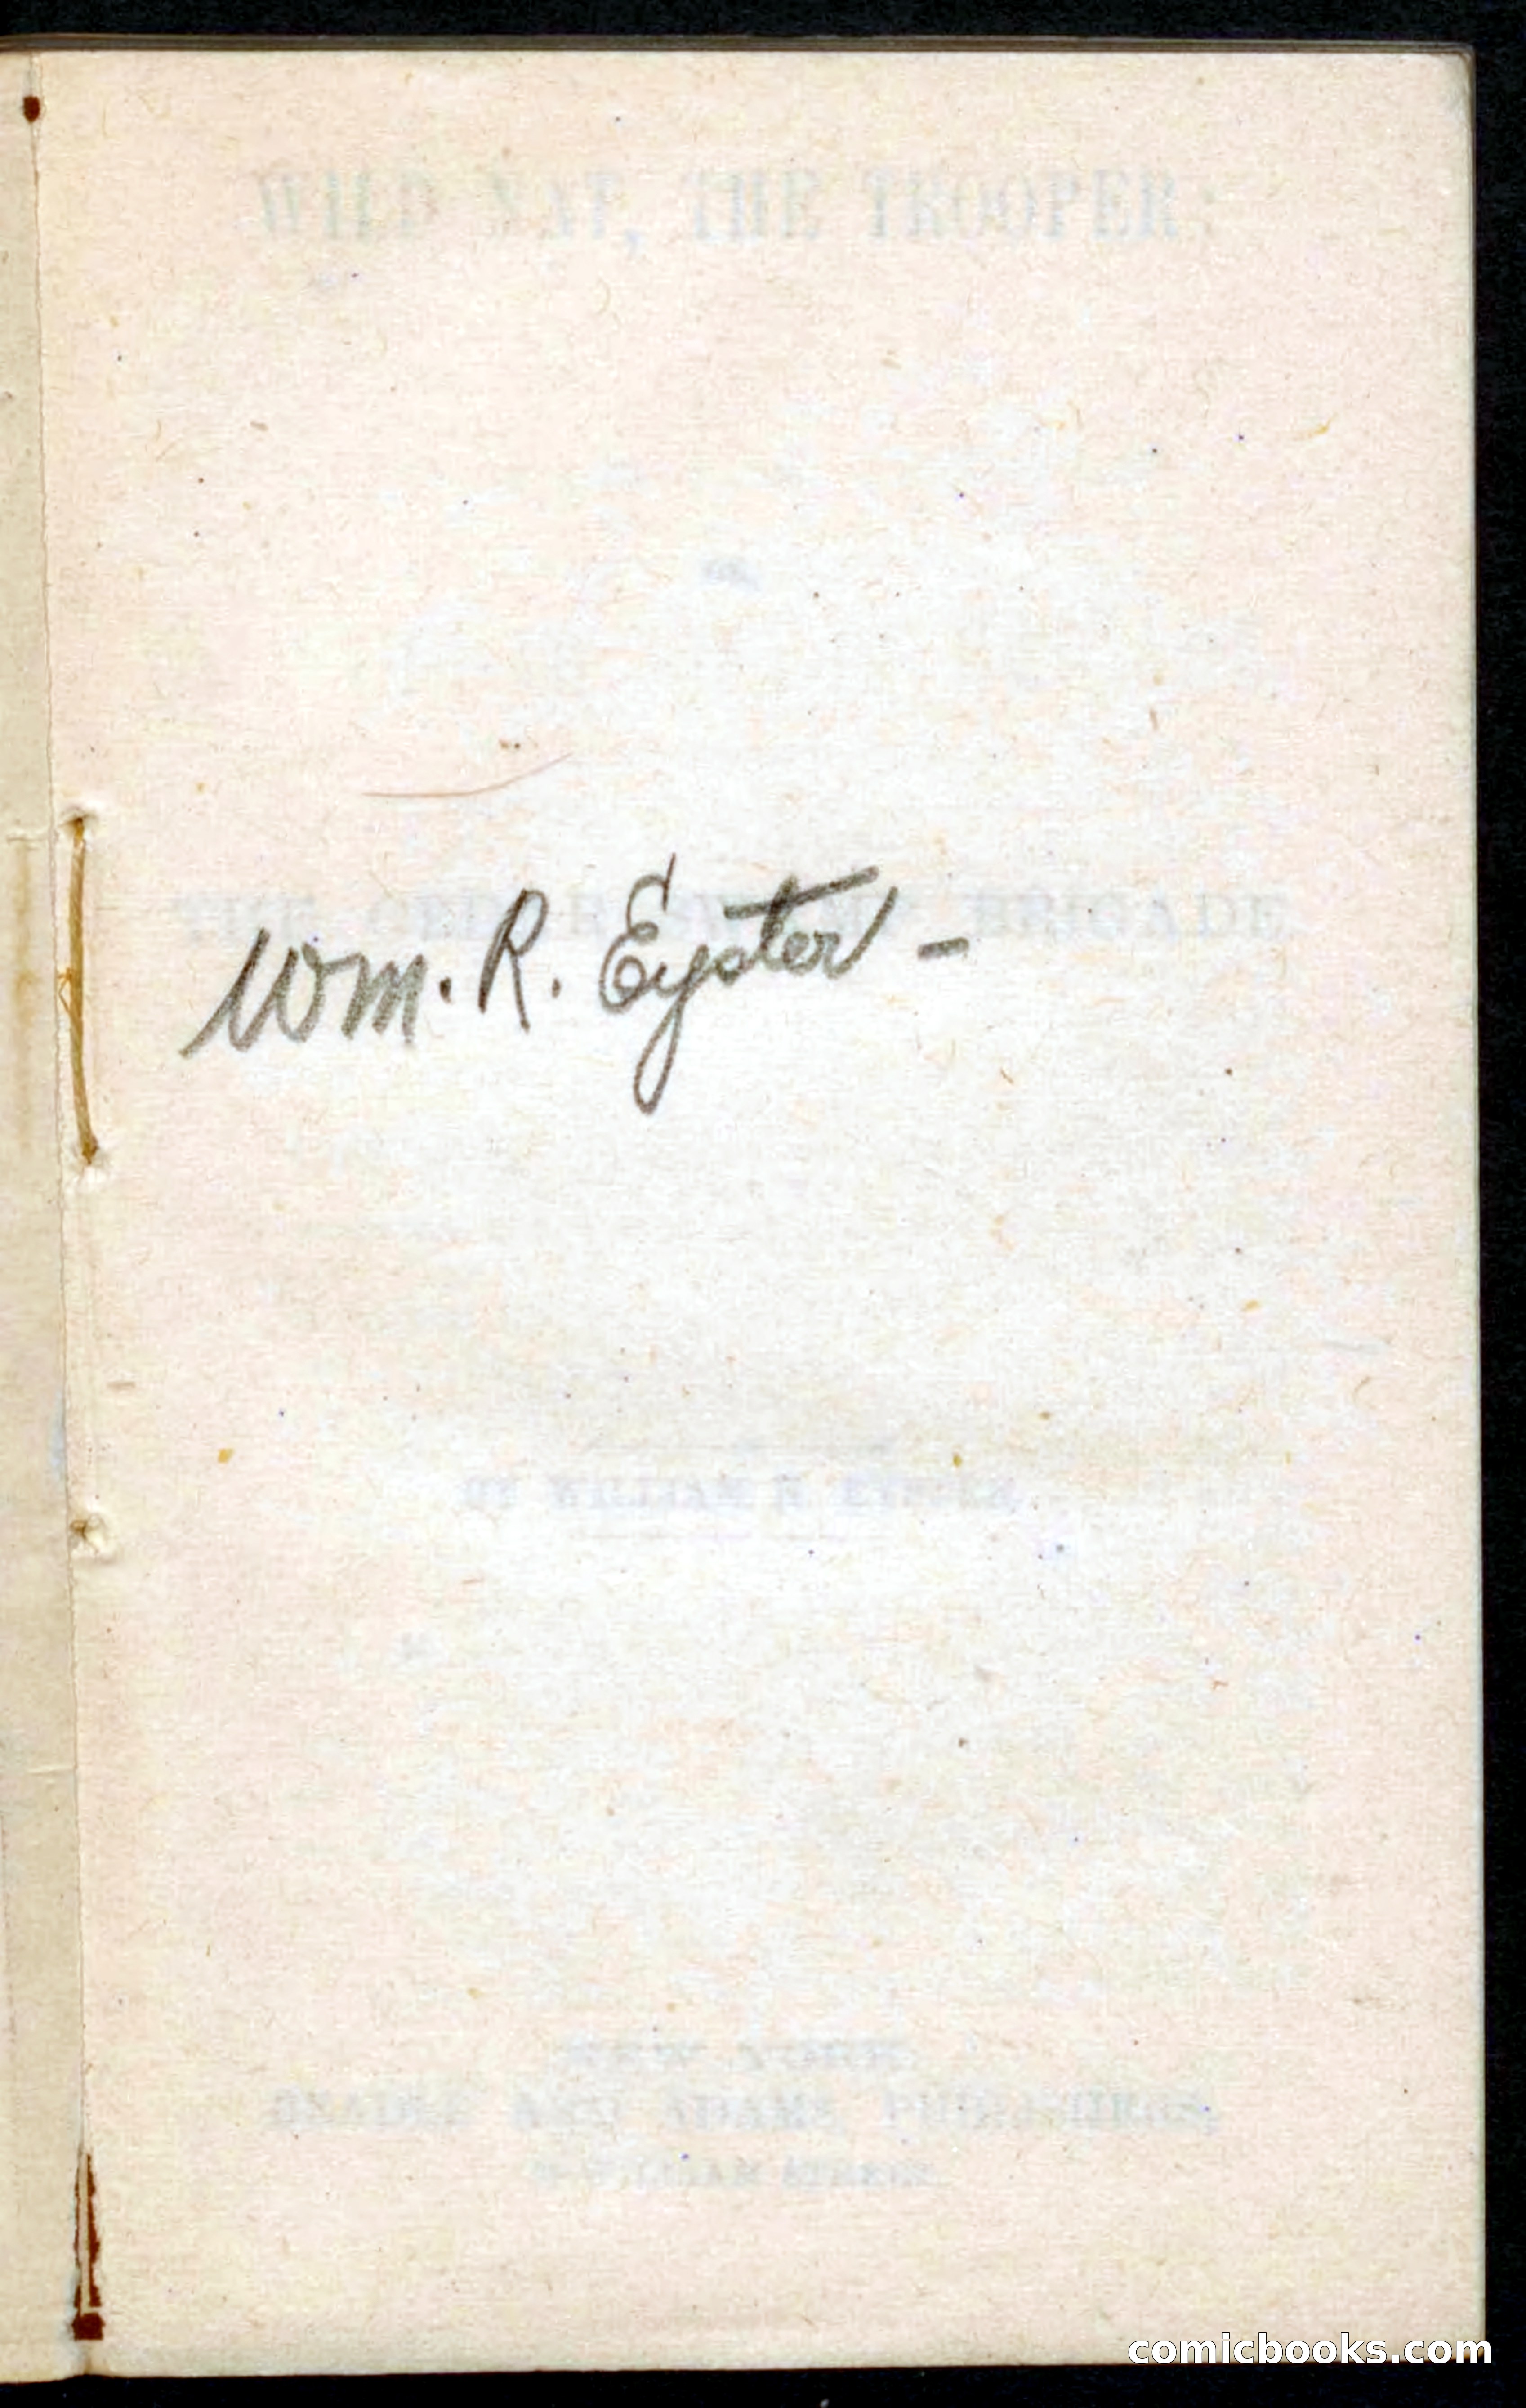 WILD NAT, THE TROOPER;
OR,
THE CEDAR SWAMP BRIGADE
Wm. R. Eyster -
BY WILLIAM R. EYSTER
NEW YORK
BEADLE AND ADAMS, PUBLISHERS,
WILLIAM STREET
comicbooks.com